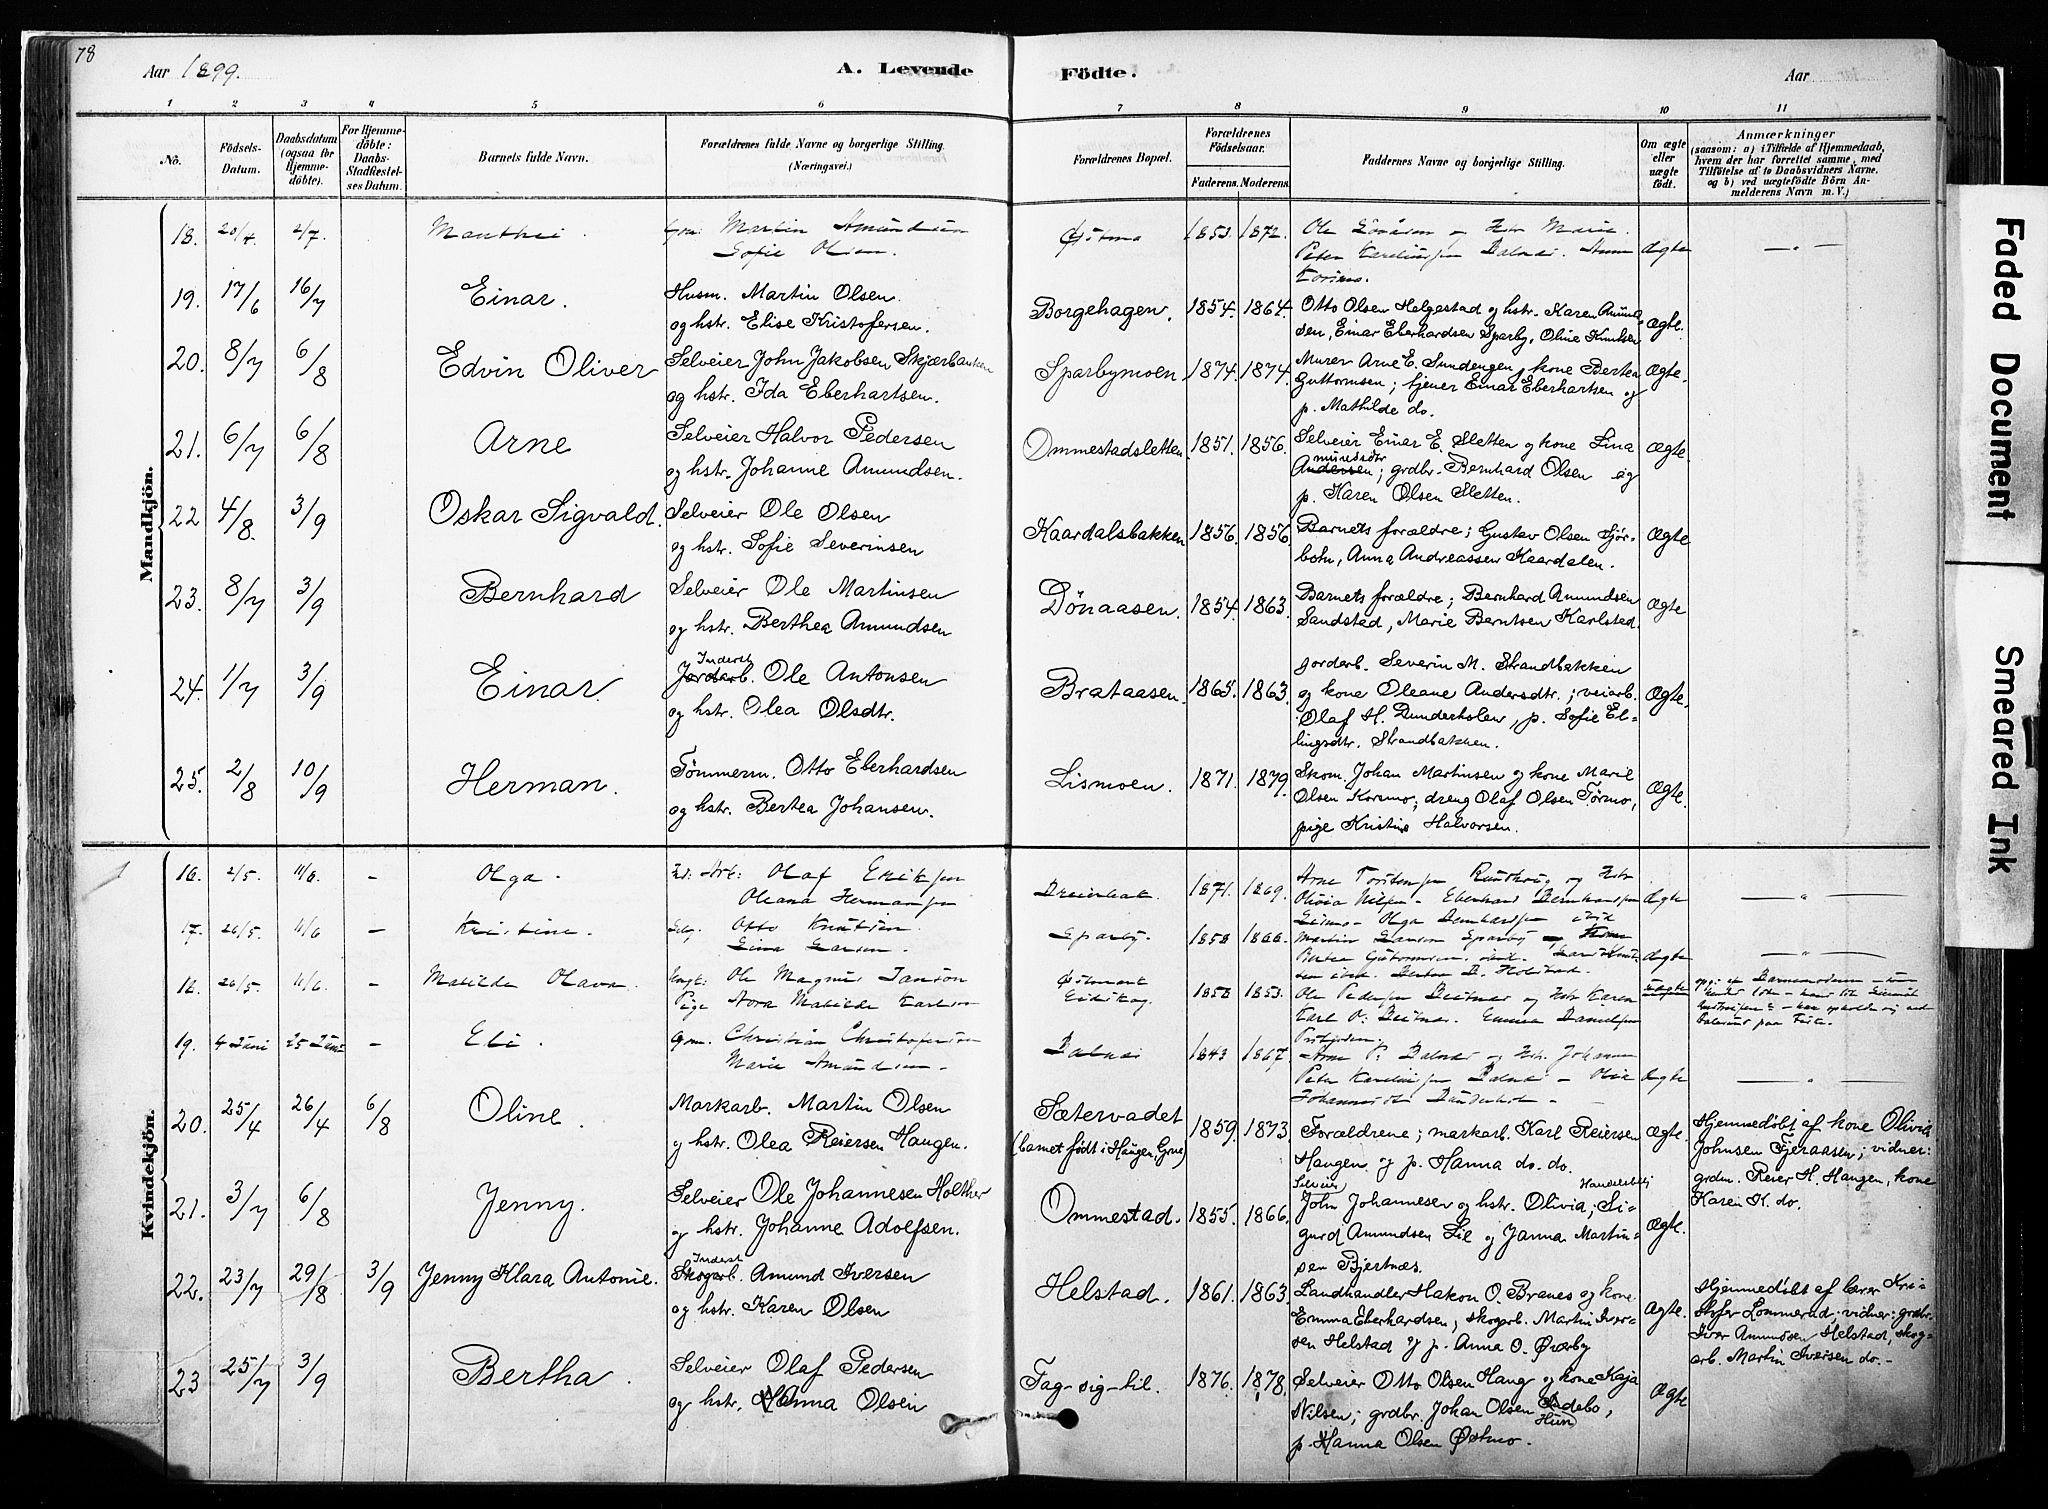 78
Aar 1899.
A. Levende Födte.
Aar
1 2 3 4 5 6 7 8 9 10 11
No.
Födsels-Datum.
Daabsdatum (ogsaa for Hjemmedöbte).
For Hjemmedöbte: Daabs-Stadfæstelses Datum.
Barnets fulde Navn.
Forældrenes fulde Navne og borgerlige Stilling. (Næringsvei.)
Forældrenes Bopæl.
Forældrenes Födselsaar.
Faderens. Moderens.
Faddernes Navne og borgerlige Stilling.
Om ægte eller uægte födt.
Anmærkninger
(saasom: a) i Tilfælde af Hjemmedaab, hvem der har forrettet samme, med Tilföielse af to Daabsvidners Navne. og b) ved uægtefödte Börn Anmelderens Navn m. V.)
Mandkjön.
18. 20/4 2/7 Manthei. Gm. Martin Amundsen
Sofie Olsen. Østmo 1853. 1872. Ole og Hstr Marie
Peter Karelius Ægte — " —
19. 17/6 16/7 Einar. Husm. Martin Olsen.
og hstr. Elise Kristofersen. Borgehagen. 1854. 1864. Otto Olsen Helgestad og hstr. Karen Amund-
sen, Einar Eberhardsen Sparby, Oline Knudsen Ægte.
20. 8/7 6/8 Edvin Oliver Selveier John Jakobsen Skjærbakken
og hstr. Ida Eberhartsen. Sparbymoen 1874. 1874. Murer Arne E. Sundengen, kone Berthe
Guttormsen; tjener Einar Eberhartsen og
p. Mathilde do. Ægte.
21. 6/7 6/8 Arne Selveier Halvor Pedersen
og hstr. Johanne Amundsen. Ommestadsletten 1851. 1856. Selveier Einar E. Sletten og kone Lina
Andersen mundsdtr; grdbr. Bernhard Olsen og
p. Karen Olsen Sletten. Ægte.
22 4/8. 3/9 Oskar Sigvald. Selveier Ole Olsen
og hstr. Sofie Severinsen Kaardalsbakken 1856. 1856 Barnets forældre; Gustav Olsen Sjør-
botn, Anna Andreassen Kaardalen. Ægte
23. 8/7 3/9 Bernhard Selveier Ole Martinsen
og hstr. Berthea Amundsen Dönaasen. 1854. 1863. Barnets forældre; Bernhard Amundsen
Sandstad, Marie Berntsen Karlstad. Ægte
24. 1/7 3/9 Einar. Jordarb. Inderst Ole Antonsen
og hstr. Olea Olsdtr. Brataasen. 1865. 1863. Jordarb. Severin M. Strandbakken
og kone Oleane Andersdtr.; veiarb.
Olaf H. Dunderholen, p. Sofie El-
lingsdtr. Strandbakken. Ægte.
25. 2/8 10/9 Herman. Tömmerm. Otto Eberhardsen
og hstr. Bertea Johansen. Lismoen. 1871. 1879. Skom. Johan Martinsen og kone Marie
Olsen Kormo; dreng Olaf Olsen Törmo,
pige Kristine Halvorsen. Ægte.
Kvindekjön.
16. 2/5. 11/6. — Olga. Arb: Olaf Eriksen
Oleana Hermansen 1871. 1869. Arne og Hstr
Olivia Nilsen - Eberhard Bernhardsen
Olga Bernhardsen Ægte — " —
17. 26/5. 11/6 — Kristine. Otto Knutsen.
Gina Larsen Sparby. 1858 1866. Martin Larsen Sparby
Ægte — " —
18. 26/5. 11/6. — Matilde Olava. Ungk: Ole Magnus Jansen
Pige Nora Matilde Karlsen Østmoet
Eidskog. 1858 1853. Ole Pedersen og Hstr Karen
Karl P. Emma Danielsen Uægte
19. 4 Juni 25 Juni — Eli. Gm. Christian Christofersen
Marie Amundsen - Balnæs 1843 1867. Arne P. Balnæs og Hstr. Johanne
Peter Karelius Balnæs - Olia
Johannesdtr Dunderhol - Ægte — " —
20. 25/4 26/4 6/8 Oline. Markarb. Martin Olsen
og hstr. Olea Reiersen Haugen. Sætervadet
(barnet født i Haugen, Grue) 1859. 1873. Forældrene; markarb. Karl Reiersen
Haugen og p. Hanna do. do. Ægte. Hjemmedöbt af kone Olivia
Johnsen Tjeraasen; vidner:
grdm. Reier H. Haugen, kone
Karen K. do.
21. 3/7 6/8 Jenny. Selveier Ole Johannesen Holther
og hstr. Johanne Adolfsen. Ommestad. 1855. 1866. Selveier John Johannesen og hstr. Olivia; Si-
gurd Amundsen Lie og Janna Martin-
sen Bjertnæs. Ægte.
22. 23/7 29/8 3/9 Jenny Klara Antonie. Skogarb. Inderst Amund Iversen
og hstr. Karen Olsen Helstad. 1861. 1863. Landhandler Hakon O. Branes og kone
Emma Eberhardsen, skogarb. Martin Iver-
sen Helstad og p. Anna O. Øveby Ægte. Hjemmedöbt af lærer Kri-
stofer Lommerud; vidner: grdbr.
Iver Amundsen Helstad, skog-
arb. Martin Iversen do. -
23 25/7 3/9 Bertha. Selveier Olaf Pedersen
og hstr. Hanna Olsen Tag-sig-til. 1876. 1878. Selveier Otto Olsen Haug og kone Kaja
Nilsen; grdbr. Johan Olsen
p. Hanna Olsen Østmo. Ægte
Faded Document
Smeared Ink